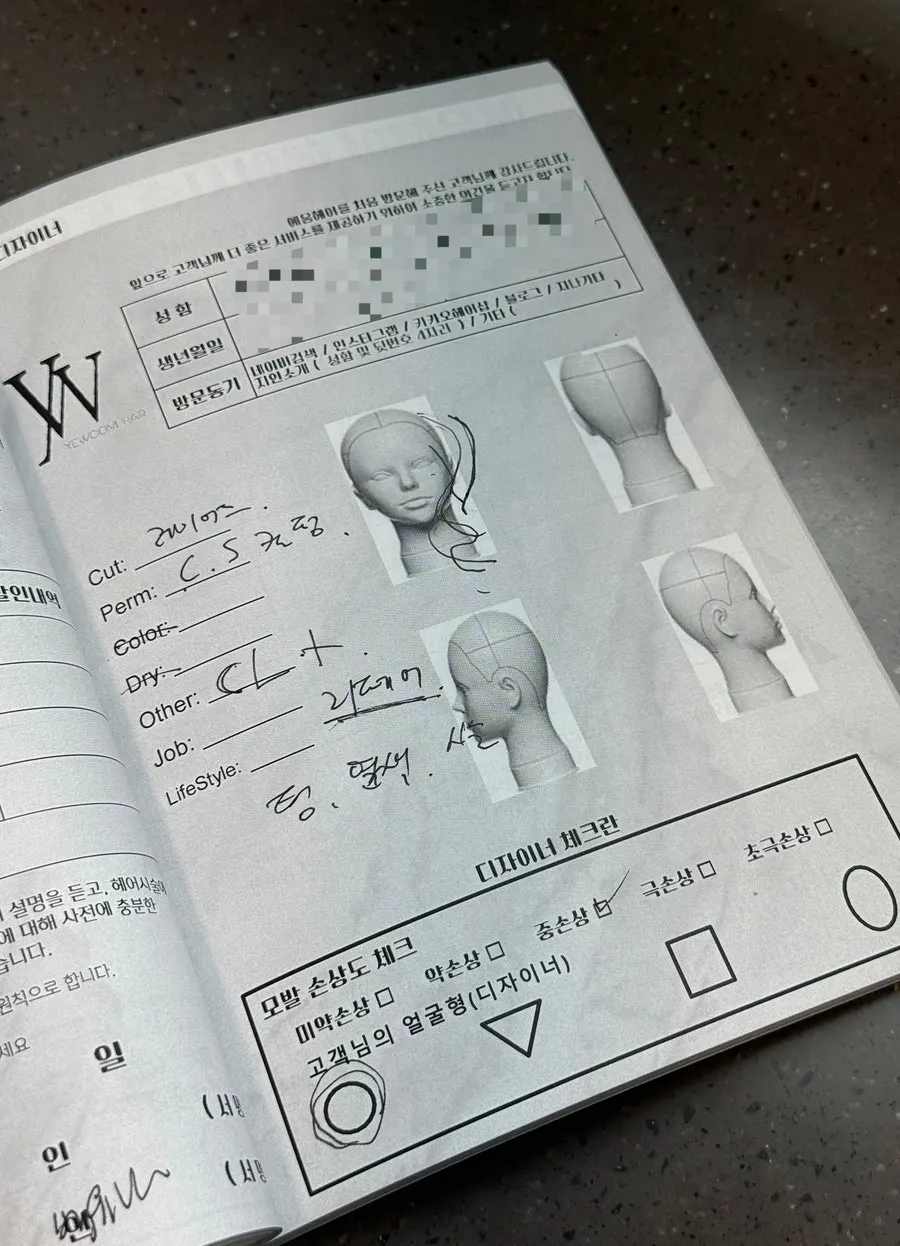 디자이너
예움헤어를 처음 방문해 주신 고객님께 감사드립니다.
앞으로 고객님께 더 좋은 서비스를 제공하기 위하여 소중한 의견을 듣고자 합니다
성 함
생년월일
방문동기
네이버검색 / 인스타그램 / 카카오헤어샵 / 블로그 / 지나가다
지인소개 ( 성함 및 뒷번호 4자리 ) / 기타 ( )
YEWOOM HAIR
Cut: 레이어드.
Perm: C.S 컬 펌.
Color:
Dry:
Other: CL +.
Job:
LifeStyle:
펌. 열색.
할인내역
설명을 듣고, 헤어시술에
에 대해 사전에 충분한
습니다.
원칙으로 합니다.
세요
일
(서명
인
(서명
디자이너 체크란
모발 손상도 체크
미약손상 약손상 중손상 극손상 초극손상
고객님의 얼굴형(디자이너)